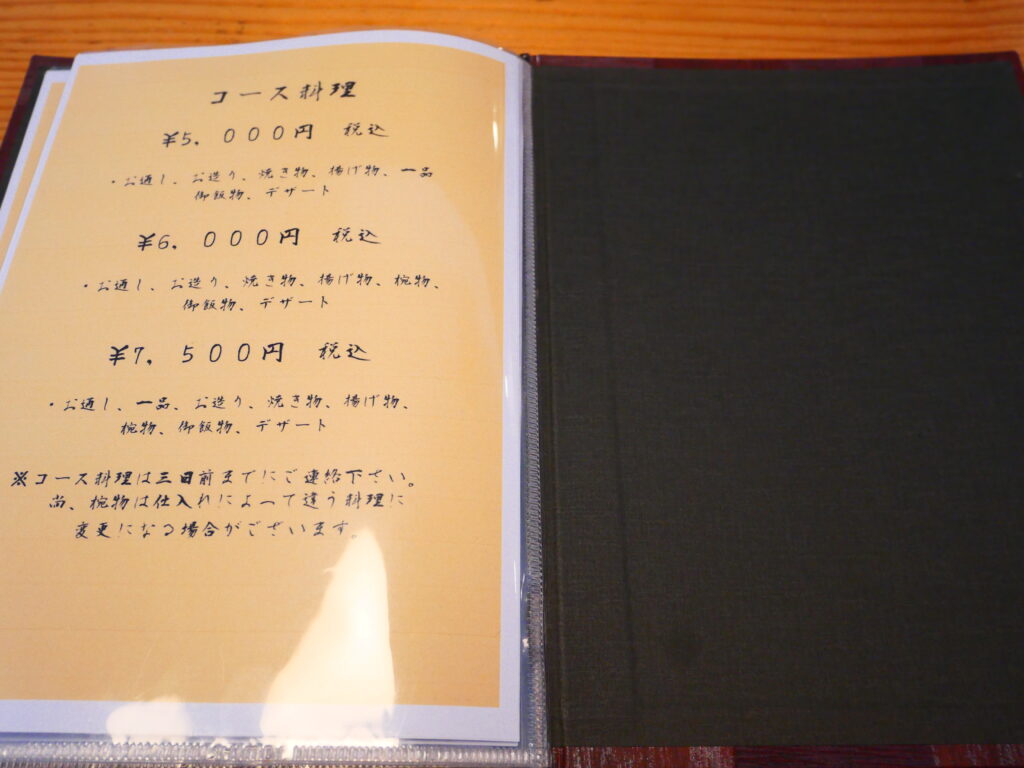 コース料理
¥5,000円 税込
・お通し、お造り、焼き物、揚げ物、一品
御飯物、デザート
¥6,000円 税込
・お通し、お造り、焼き物、揚げ物、椀物、
御飯物、デザート
¥7,500円 税込
・お通し、一品、お造り、焼き物、揚げ物、
椀物、御飯物、デザート
※コース料理は三日前までにご連絡下さい。
尚、椀物は仕入れによって違う料理に
変更になる場合がございます。